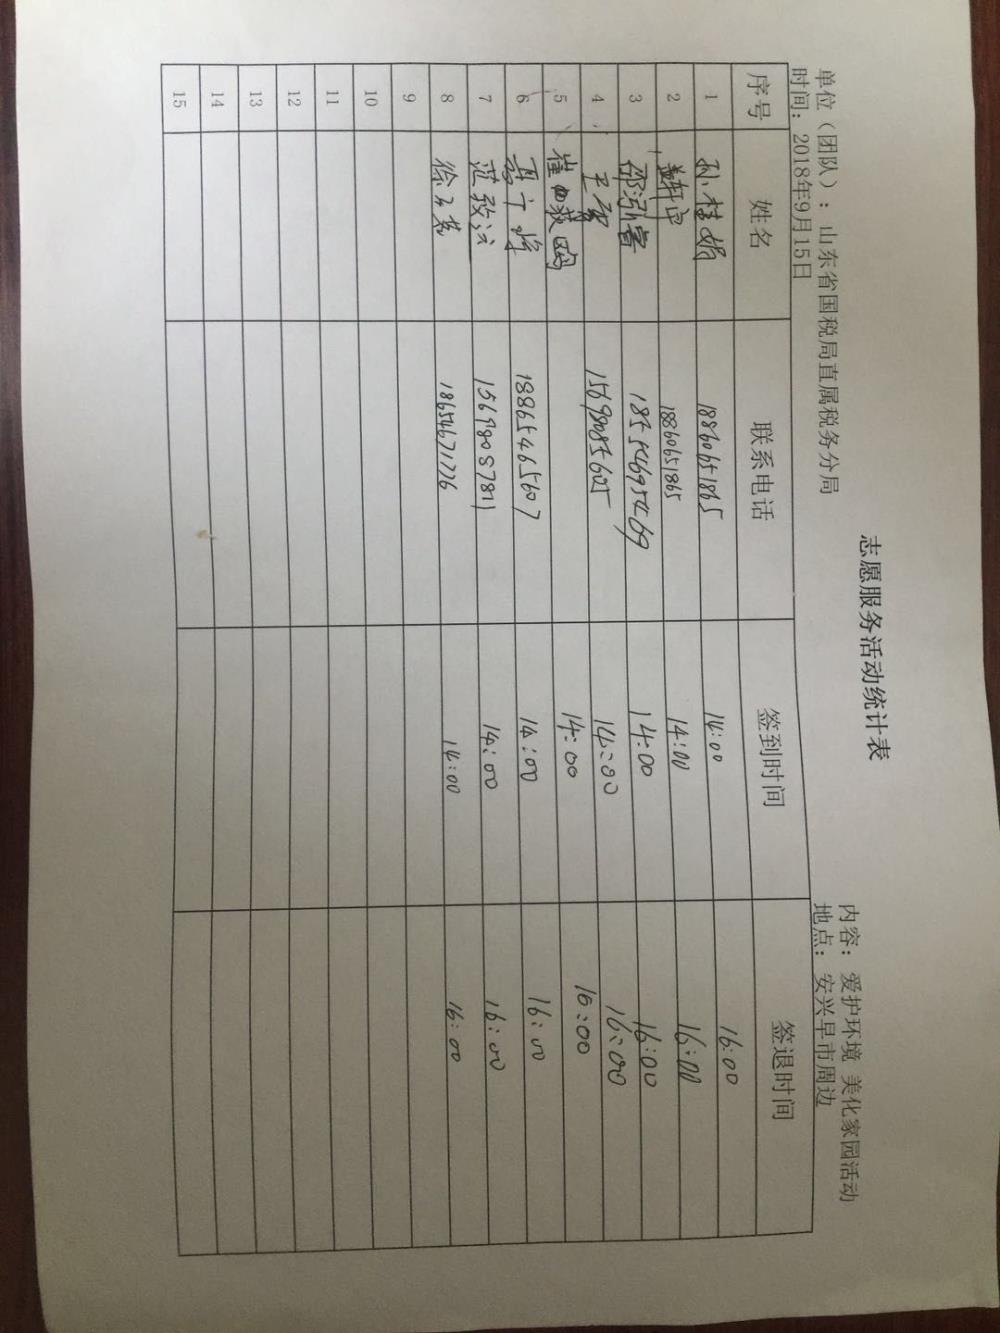 志愿服务活动统计表
单位（团队）：山东省国税局直属税务分局 内容：爱护环境 美化家园活动
时间：2018年9月15日 地点：安兴早市周边
序号 姓名 联系电话 签到时间 签退时间
1 孙桂娟 18860651865 14:00 16:00
2 18860651865 14:00 16:00
3 邵泓睿 18554695469 14:00 16:00
4 王 15698085605 14:00 16:00
5 崔 14:00 16:00
6 18865465607 14:00 16:00
7 范致 15698087811 14:00 16:00
8 徐 18654671226 14:00 16:00
9
10
11
12
13
14
15